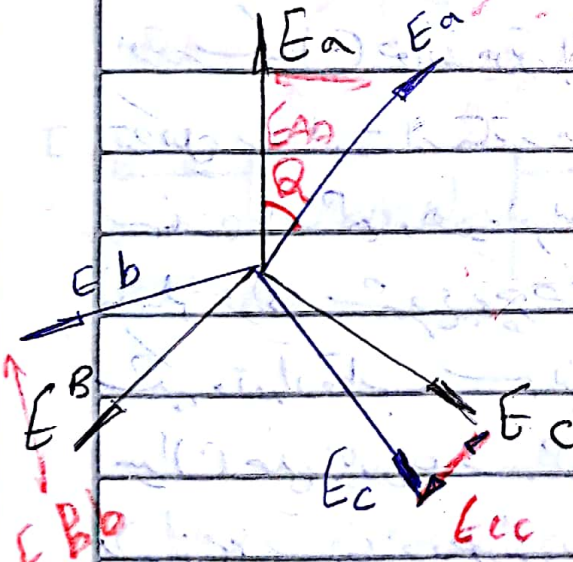 Ea
Ea
EAa
Q
Eb
EB
Ec
Ec
Ecc
EBb